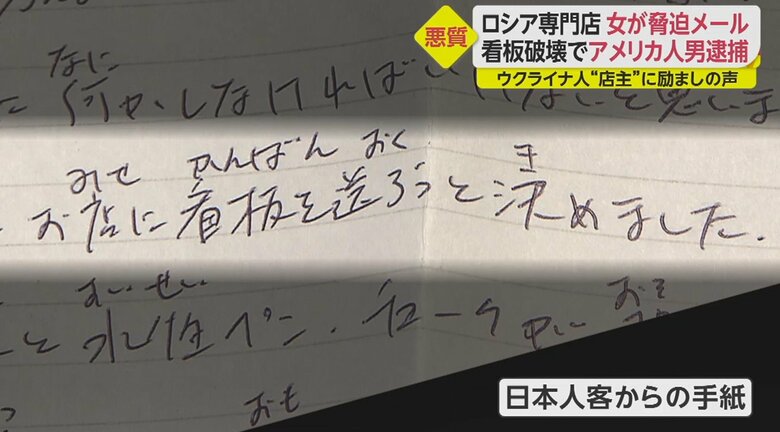 悪質
ロシア専門店 女が脅迫メール
看板破壊でアメリカ人男逮捕
ウクライナ人“店主”に励ましの声
なに
何かしなければいけないと思いま
みせ かんばん おく き
お店に看板を送ろうと決めました.
すいせい
と水性ペン.
おも
日本人客からの手紙